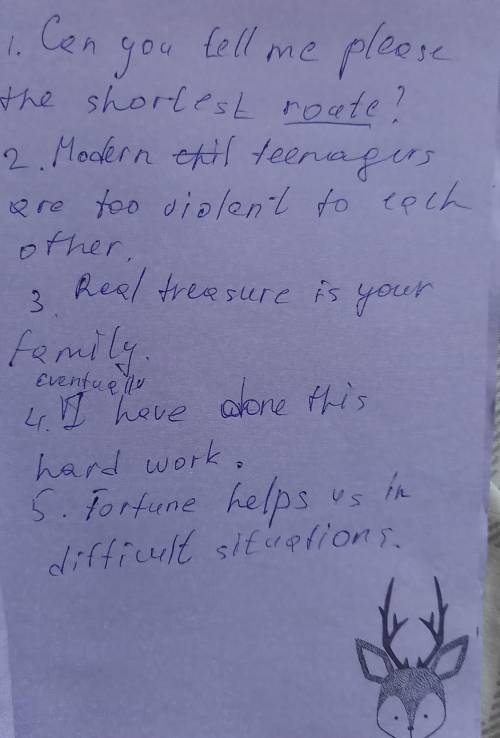 1. Can you tell me please
the shortest route?
2. Modern teenagers
are too violent to each
other.
3. Real treasure is your
family.
eventually
4. I have done this
hard work.
5. Fortune helps us in
difficult situations.